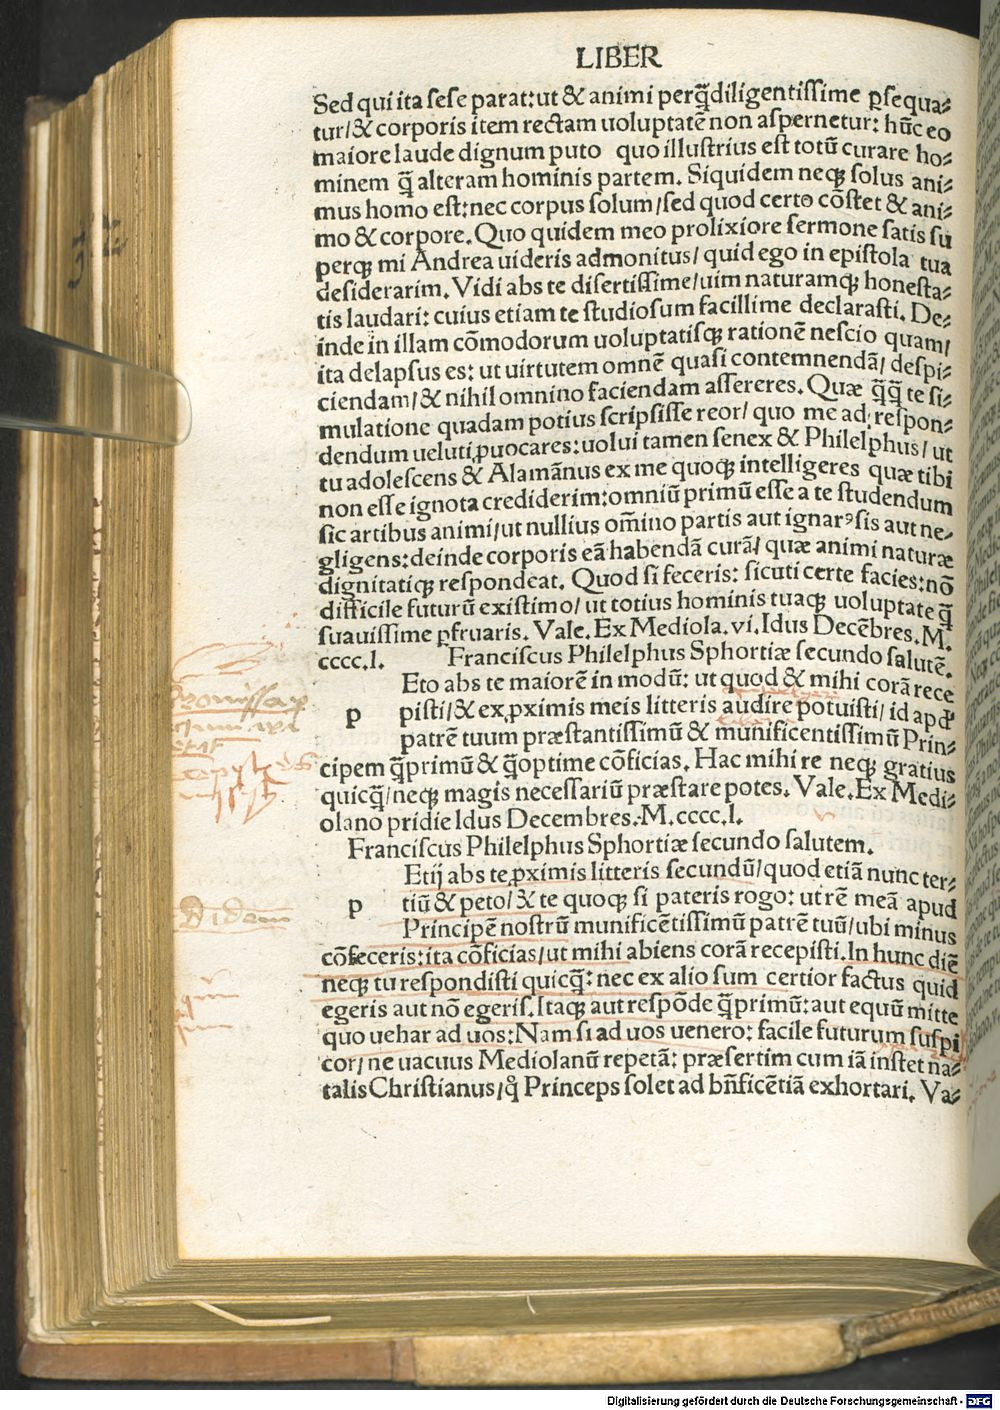 LIBER
Sed qui ita sese parat: ut & animi perq̃diligentissime ꝑsequa⸗
tur/ & corporis item rectam uoluptatẽ non aspernetur: hũc eo
maiore laude dignum puto quo illustrius est totũ curare ho⸗
minem q̃ alteram hominis partem. Siquidem neqꝫ solus ani⸗
mus homo est: nec corpus solum/ sed quod certo cõstet & ani⸗
mo & corpore. Quo quidem meo prolixiore sermone satis su
perqꝫ mi Andrea uideris admonitus/ quid ego in epistola tua
desiderarim. Vidi abs te disertissime/ uim naturamqꝫ honesta⸗
tis laudari: cuius etiam te studiosum facillime declarasti. De⸗
inde in illam cõmodorum uoluptatisqꝫ rationẽ nescio quam/
ita delapsus es: ut uirtutem omnẽ quasi contemnendã/ despi⸗
ciendam/ & nihil omnino faciendam assereres. Quæ q̃q̃ te si⸗
mulatione quadam potius scripsisse reor/ quo me ad respon⸗
dendum ueluti ꝓuocares: uolui tamen senex & Philelphus/ ut
tu adolescens & Alamãnus ex me quoqꝫ intelligeres quæ tibi
non esse ignota crediderim: omniũ primũ esse a te studendum
sic artibus animi/ ut nullius om̃ino partis aut ignarꝰ sis aut ne⸗
gligens: deinde corporis eã habendã curã/ quæ animi naturæ
dignitatiqꝫ respondeat. Quod si feceris: sicuti certe facies: nõ
difficile futurũ existimo/ ut totius hominis tuaqꝫ uoluptate q̃
suauissime ꝑfruaris. Vale. Ex Mediola. vi. Idus Decẽbres. M.
cccc.l. Franciscus Philelphus Sphortiæ secundo salutẽ.
Eto abs te maiorẽ in modũ: ut quod & mihi corã rece
p pisti/ & ex ꝓximis meis litteris audire potuisti/ id apđ
patrẽ tuum præstantissimũ & munificentissimũ Prin⸗
cipem q̃primũ & q̃optime cõficias. Hac mihi re neqꝫ gratius
quicq̃/ neqꝫ magis necessariũ præstare potes. Vale. Ex Medi⸗
olano pridie Idus Decembres. M.cccc.l.
Franciscus Philelphus Sphortiæ secundo salutem.
Etij abs te ꝓximis litteris secundũ/ quod etiã nunc ter⸗
p tiũ & peto/ & te quoqꝫ si pateris rogo: ut rẽ meã apud
Principẽ nostrũ munificẽtissimũ patrẽ tuũ/ ubi minus
cõfeceris: ita cõficias/ ut mihi abiens corã recepisti. In hunc diẽ
neqꝫ tu respondisti quicq̃: nec ex alio sum certior factus quid
egeris aut nõ egeris. Itaqꝫ aut respõde q̃primũ: aut equũ mitte
quo uehar ad uos: Nam si ad uos uenero: facile futurum suspi
cor/ ne uacuus Mediolanũ repetã: præsertim cum iã instet na⸗
talis Christianus/ q̊ Princeps solet ad bñficẽtiã exhortari. Va⸗
Digitalisierung gefördert durch die Deutsche Forschungsgemeinschaft - DFG